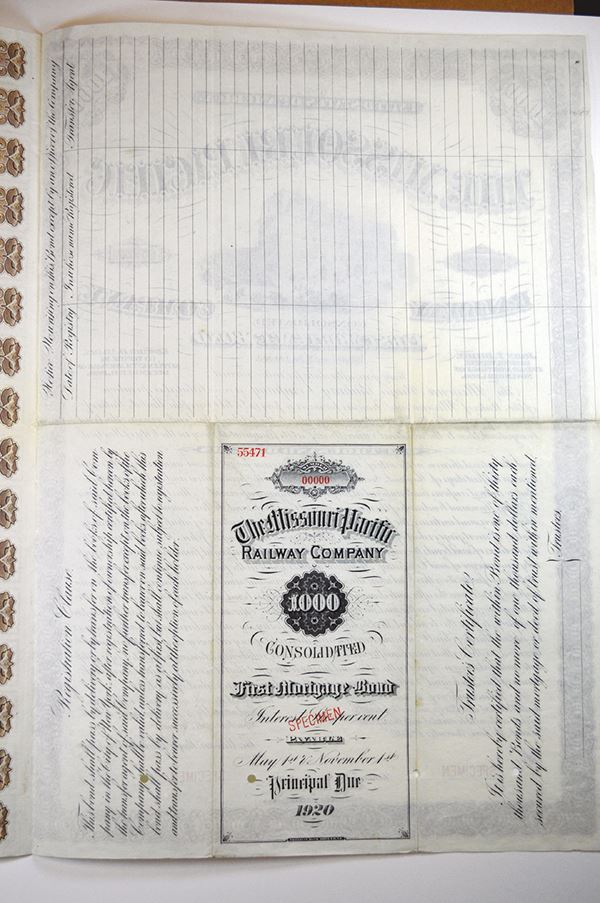 Notice. No writing on this Bond except by an officer of the Company
Date of Registry. In whose name Registered. Transfer Agent
Registration Clause
This bond shall pass by delivery or by transfer on the books of said Com-
pany in the City of New York after registration of ownership certified hereon by
the transfer agent of said Company, no further transfer except on the books of the
Company shall be valid, unless
bond shall pass by delivery as before, but shall continue subject to registration
and transfer to bearer successively at the option of each holder.
55471
00000
The Missouri Pacific
RAILWAY COMPANY
1000
CONSOLIDATED
First Mortgage Bond
Interest per cent
SPECIMEN
PAYABLE
May 1st & November 1st
Principal Due
1920
Trustee's Certificate
It is hereby certified that the within Bond is one of thirty
thousand Bonds and no more of one thousand dollars each
secured by the said mortgage or deed of trust within mentioned.
Trustees
SPECIMEN
SPECIMEN